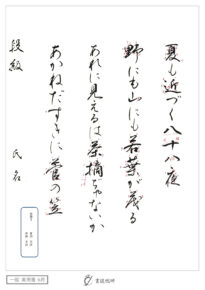 夏も近づく八十八夜
野にも山にも若葉が茂る
あれに見えるは茶摘ぢやないか
あかねだすきに菅の笠
段級　氏名
書道規範